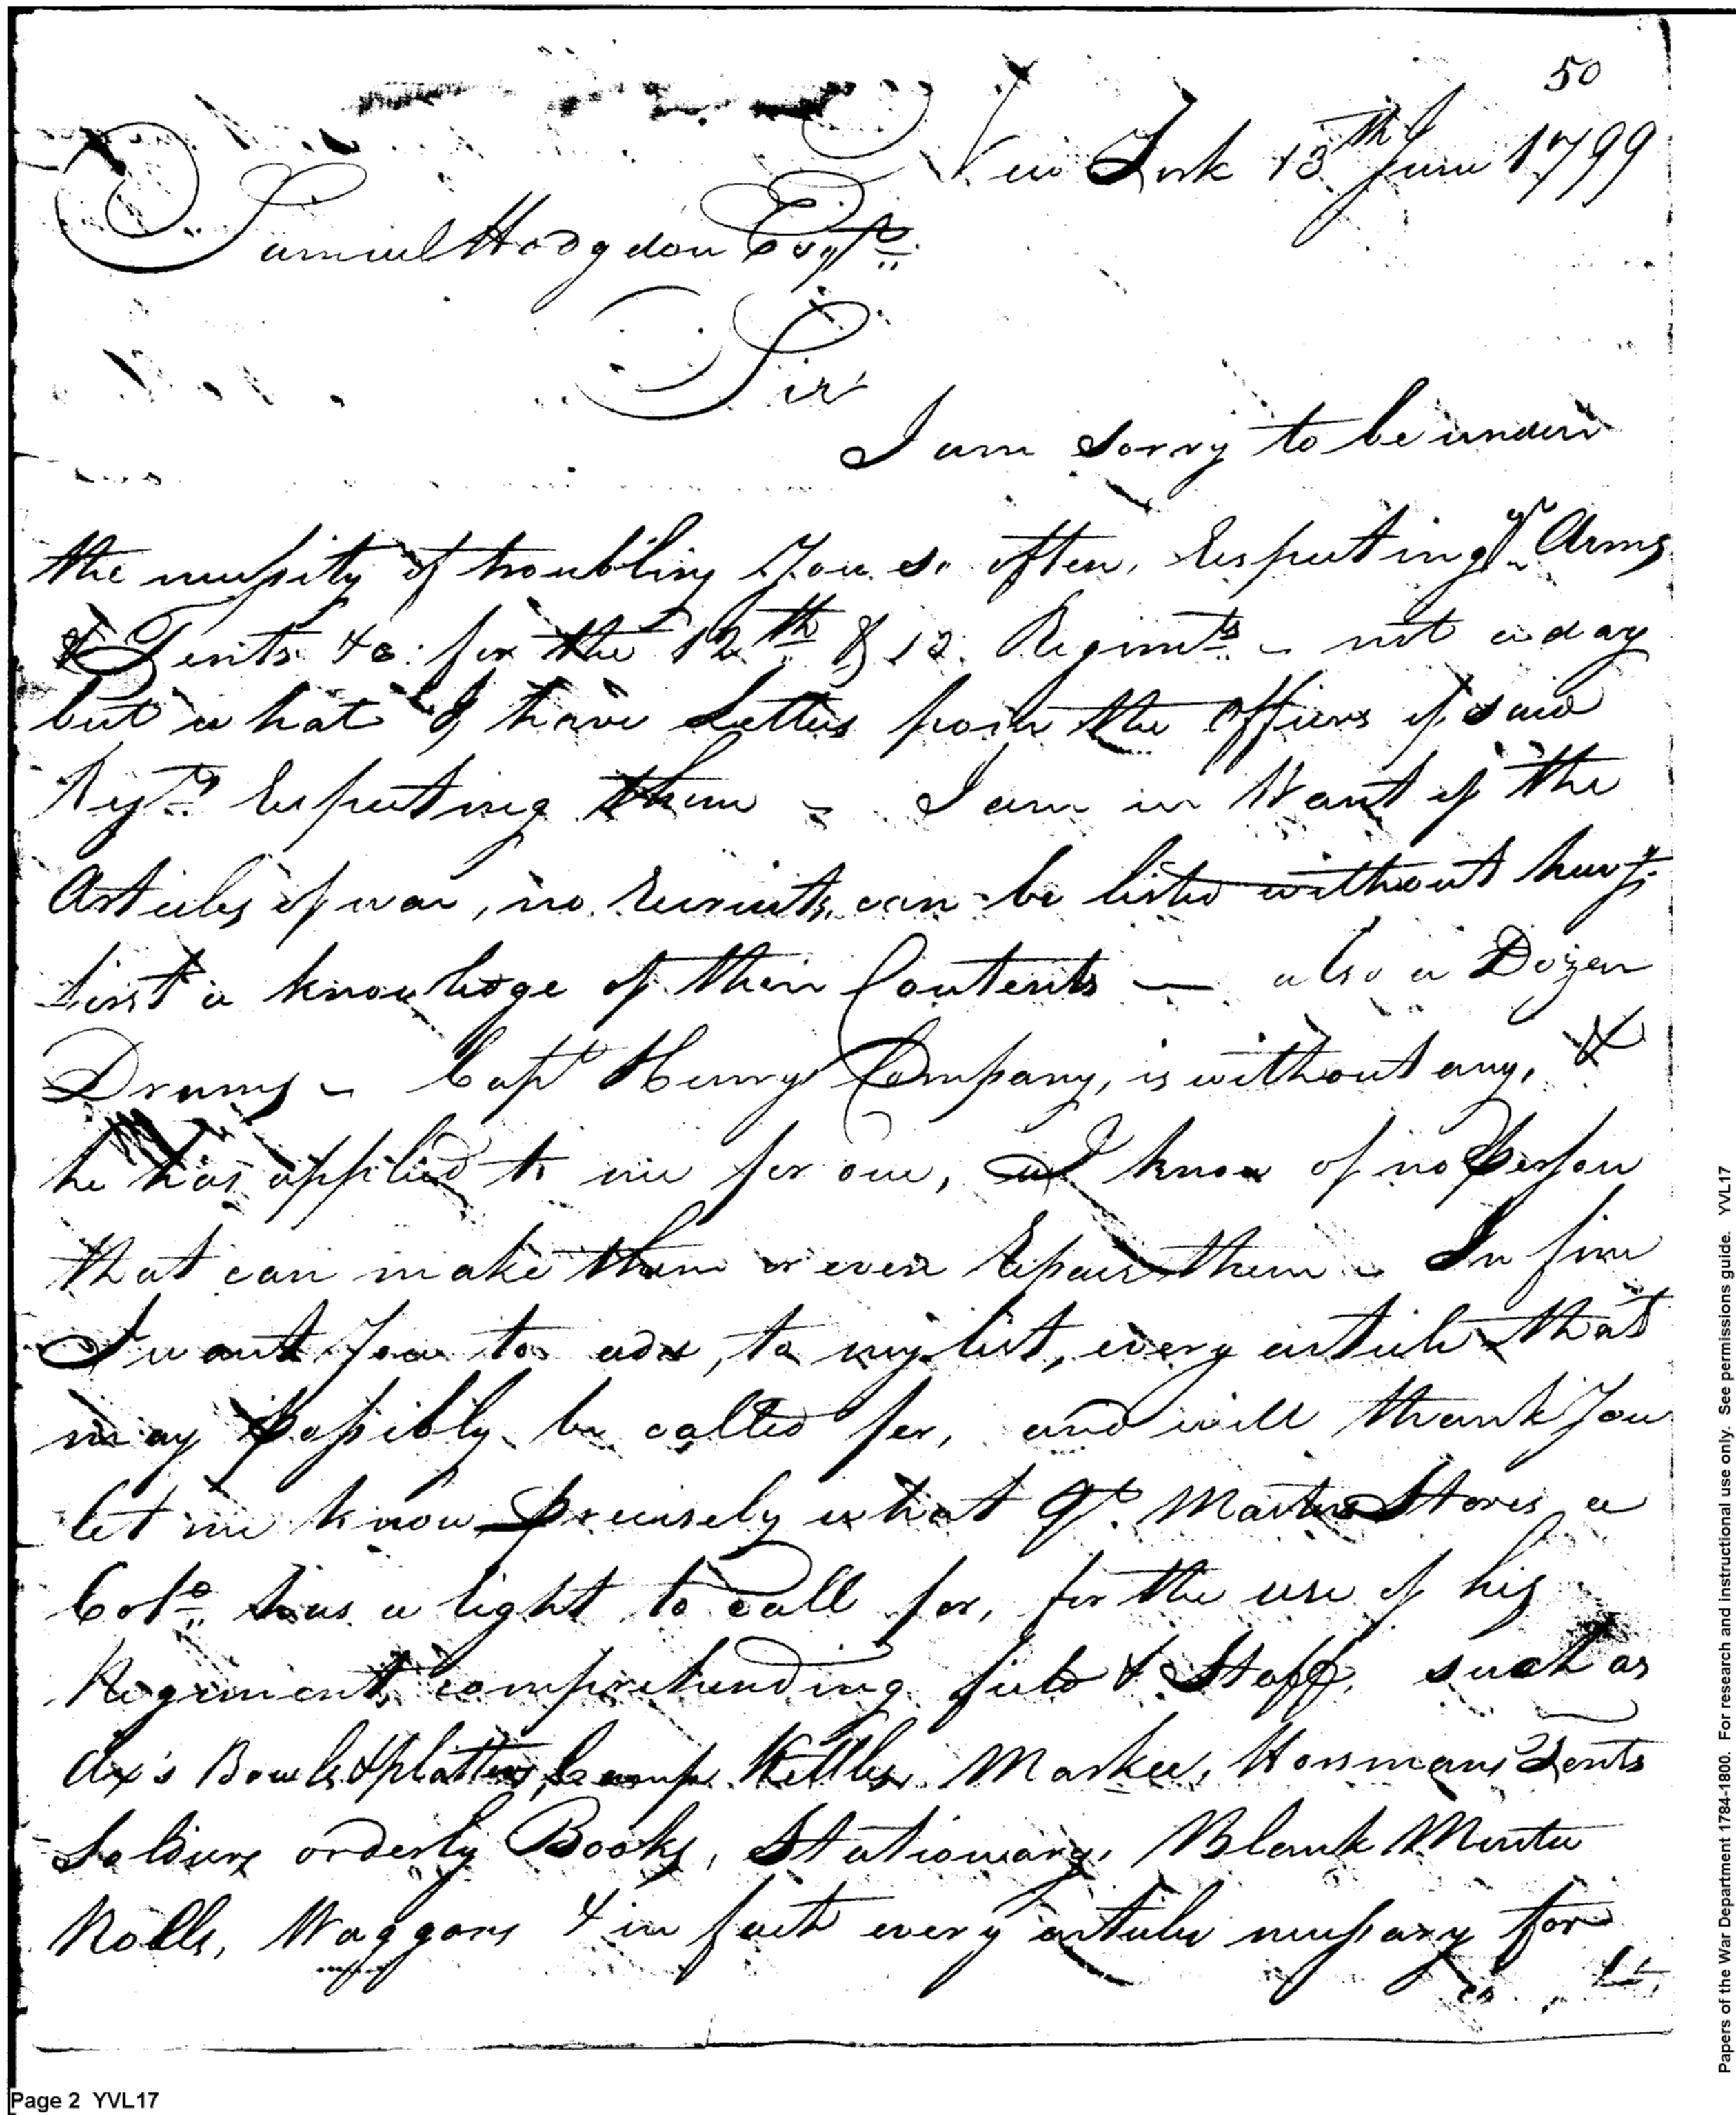 50
New York 13th June 1799
Samuel Hodgdon Esqr.
Sir
I am sorry to be under
the necessity of troubling You so often, respecting yr. Arms
& Tents &c. for the 12th & 13. Regimts. – not a day
but what I have Letters from the Officers of said
Regts. respecting them – I am in Want of the
Articles of war, no recruits can be listed without havg.
first a knowledge of their Contents — also a Dozen
Drums – Capt Henry Company, is without any, &
he has applied to me for one, I know of no Person
that can make them or even repair them – In fine
I want You to add, to my list, every article that
may possibly be called for, and will thank You
let me know precisely what Qr. Master Stores a
Colo. has a right to call for, for the use of his
Regiment comprehending field & Staff, such as
Ax's Bowls & platters, Camp Kettles Markee, Horsmans Tents
Soldiers orderly Books, Stationary, Blank Muster
Rolls, Waggons & in fact every article necessary for
Page 2 YVL17
Papers of the War Department 1784-1800. For research and instructional use only. See permissions guide. YVL17